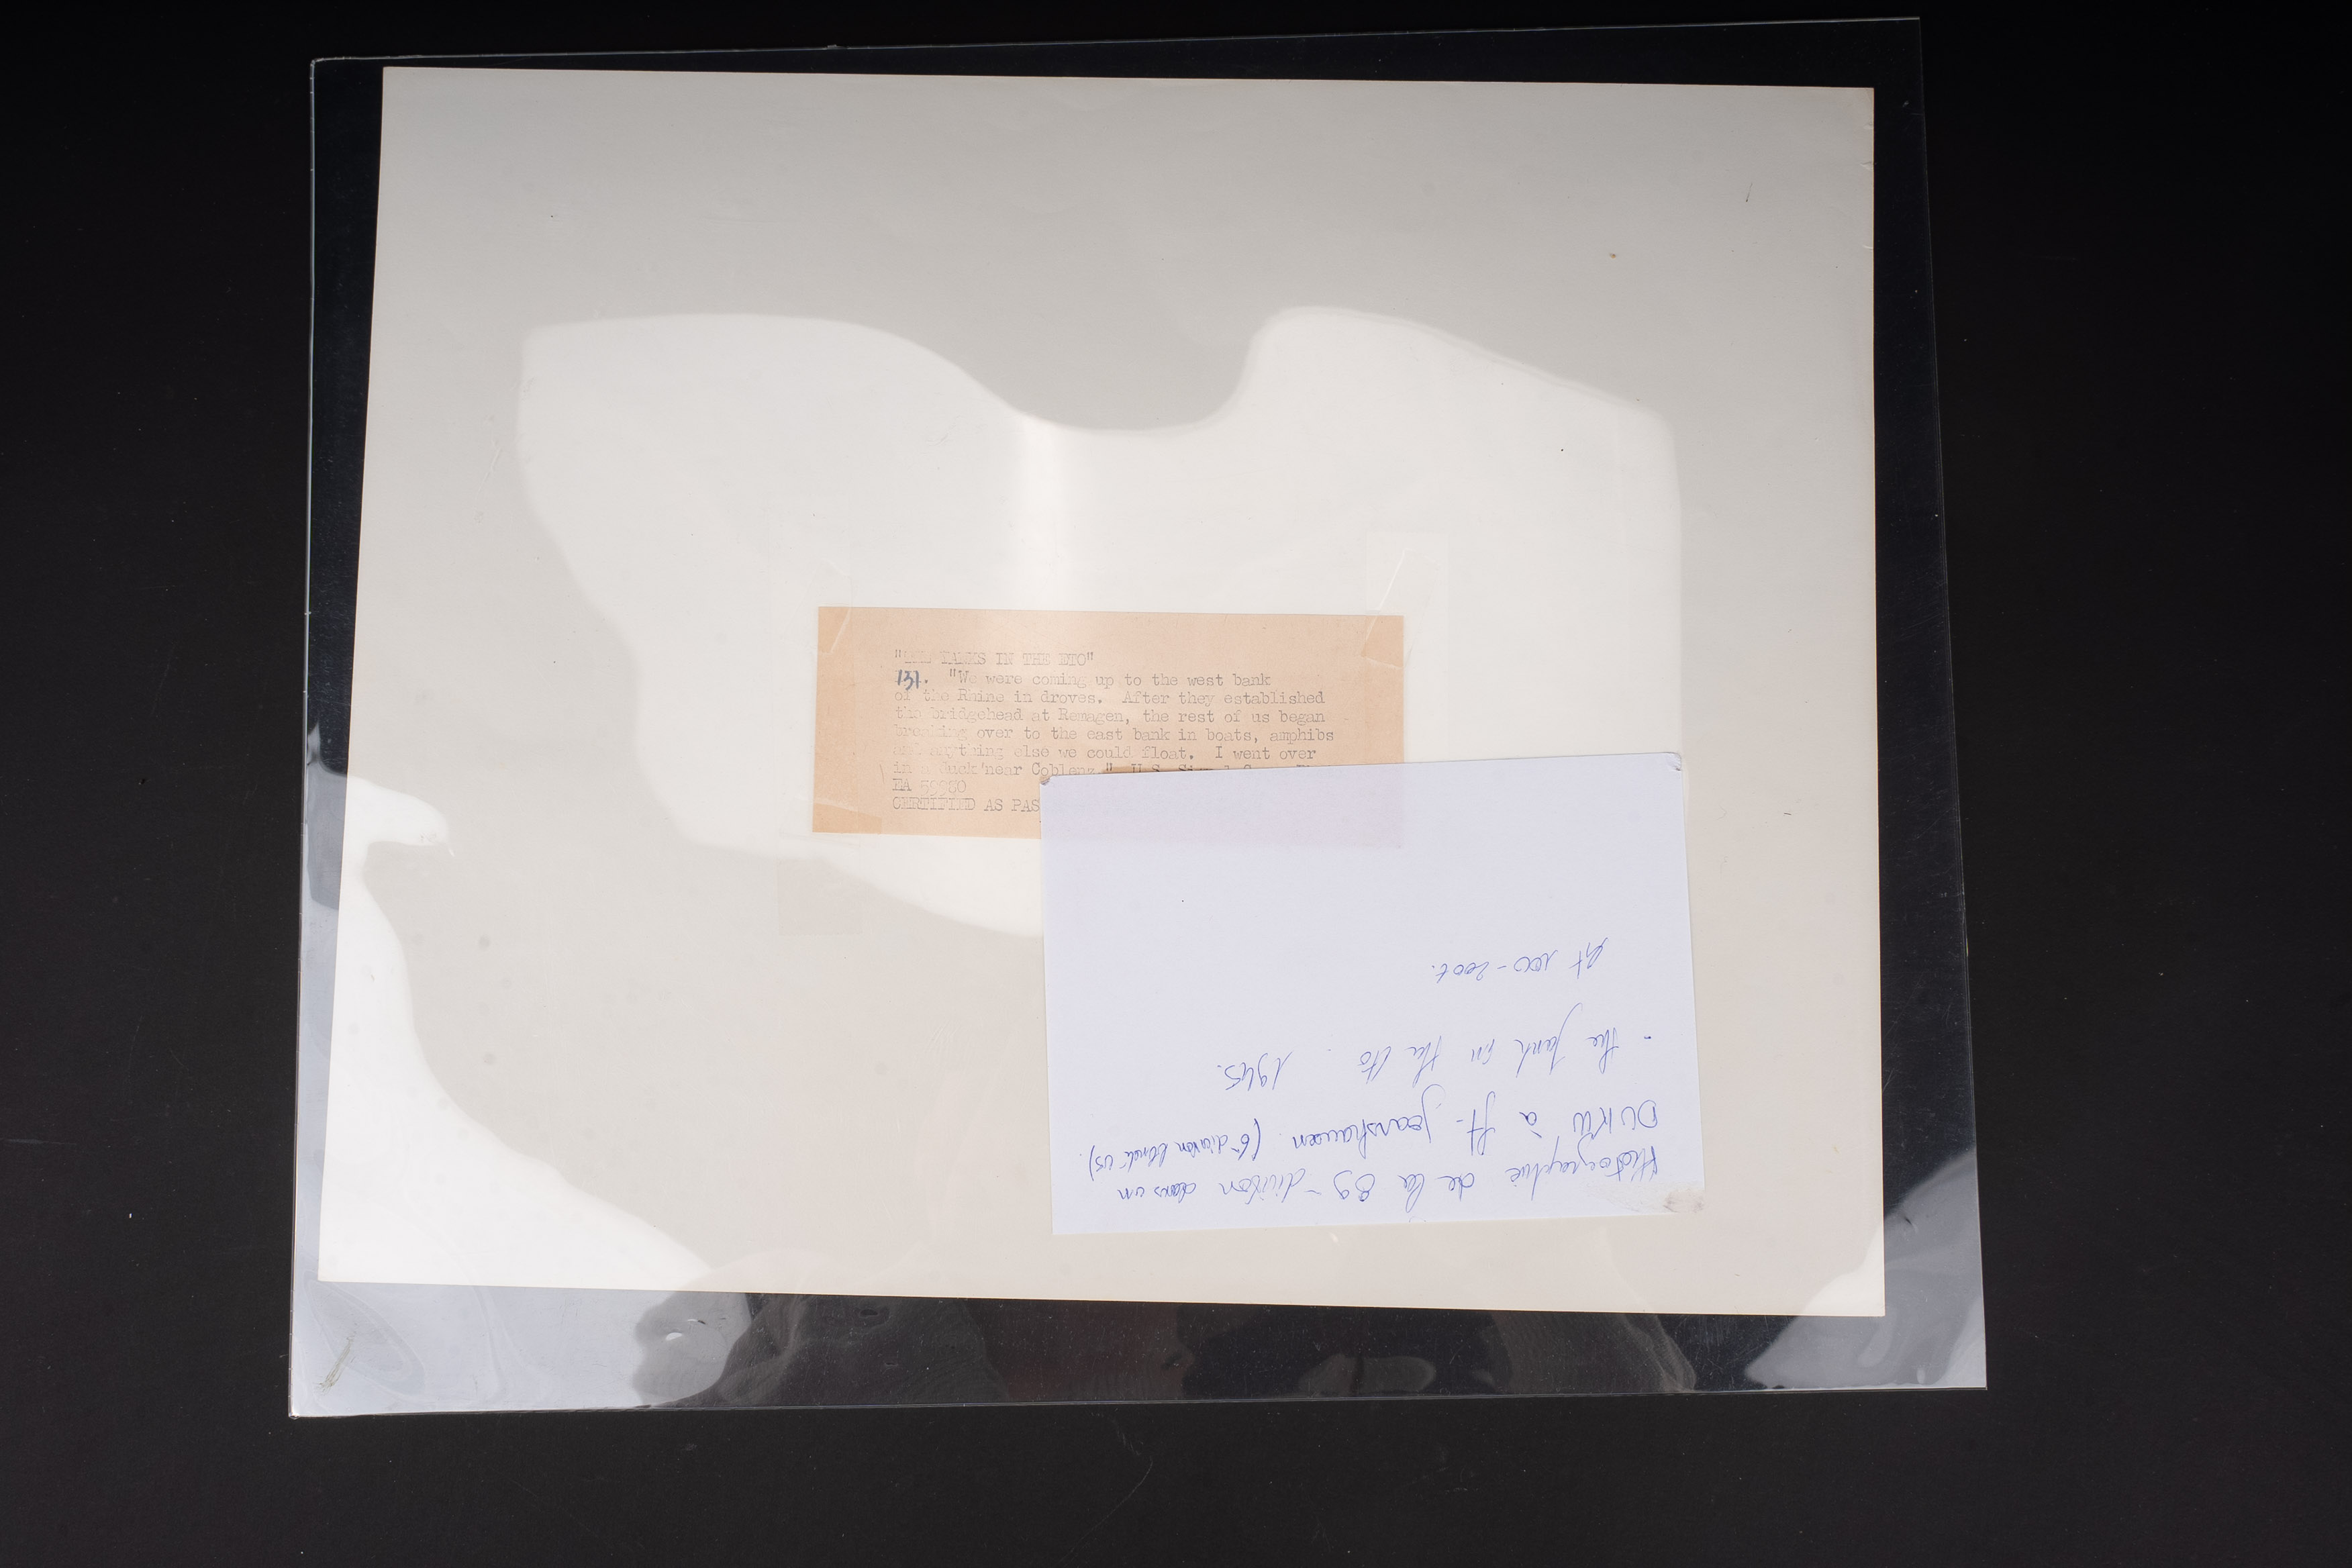 "THE YANKS IN THE ETO"
131. "We were coming up to the west bank
of the Rhine in droves. After they established
the bridgehead at Remagen, the rest of us began
breaking over to the east bank in boats, amphibs
and anything else we could float. I went over
in a 'duck' near Coblenz." U.S. Signal Corps
EA
CERTIFIED AS PAS
Photographie de la 89e division dans un
DUKW à St. (6e division US).
- the in the Eto. 1945.
100-200€.